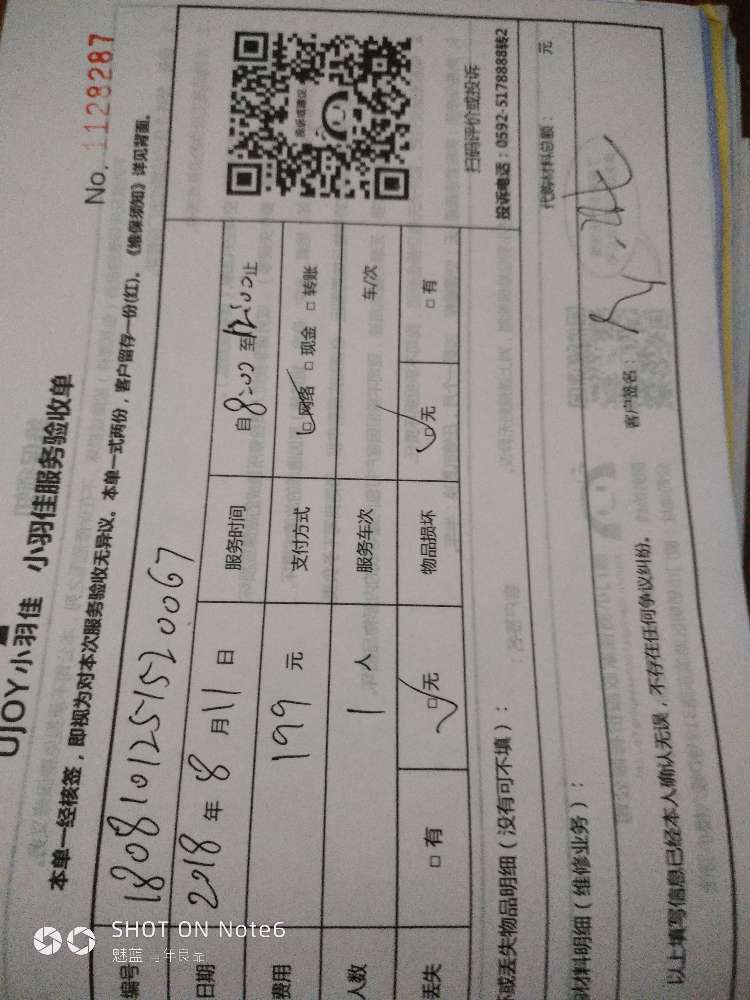 UJOY小羽佳 小羽佳服务验收单
No. 1128287
本单一经核签，即视为对本次服务验收无异议。本单一式两份，客户留存一份(红)。《维保须知》详见背面。
编号 180810125152 0067
日期 2018 年 8 月 11 日 服务时间 自 8:00 至 12:00 止
费用 199 元 支付方式 □网络 □现金 □转账
人数 1 人 服务车次 车/次
丢失 □有 □无 物品损坏 □无 □有
投诉或建议
扫码评价或投诉
投诉电话：0592-5178888转2
坏或丢失物品明细（没有可不填）：
材料明细（维修业务）：
代购材料总额： 元
以上填写信息已经本人确认无误，不存在任何争议纠纷。
客户签名：
SHOT ON Note6
魅蓝